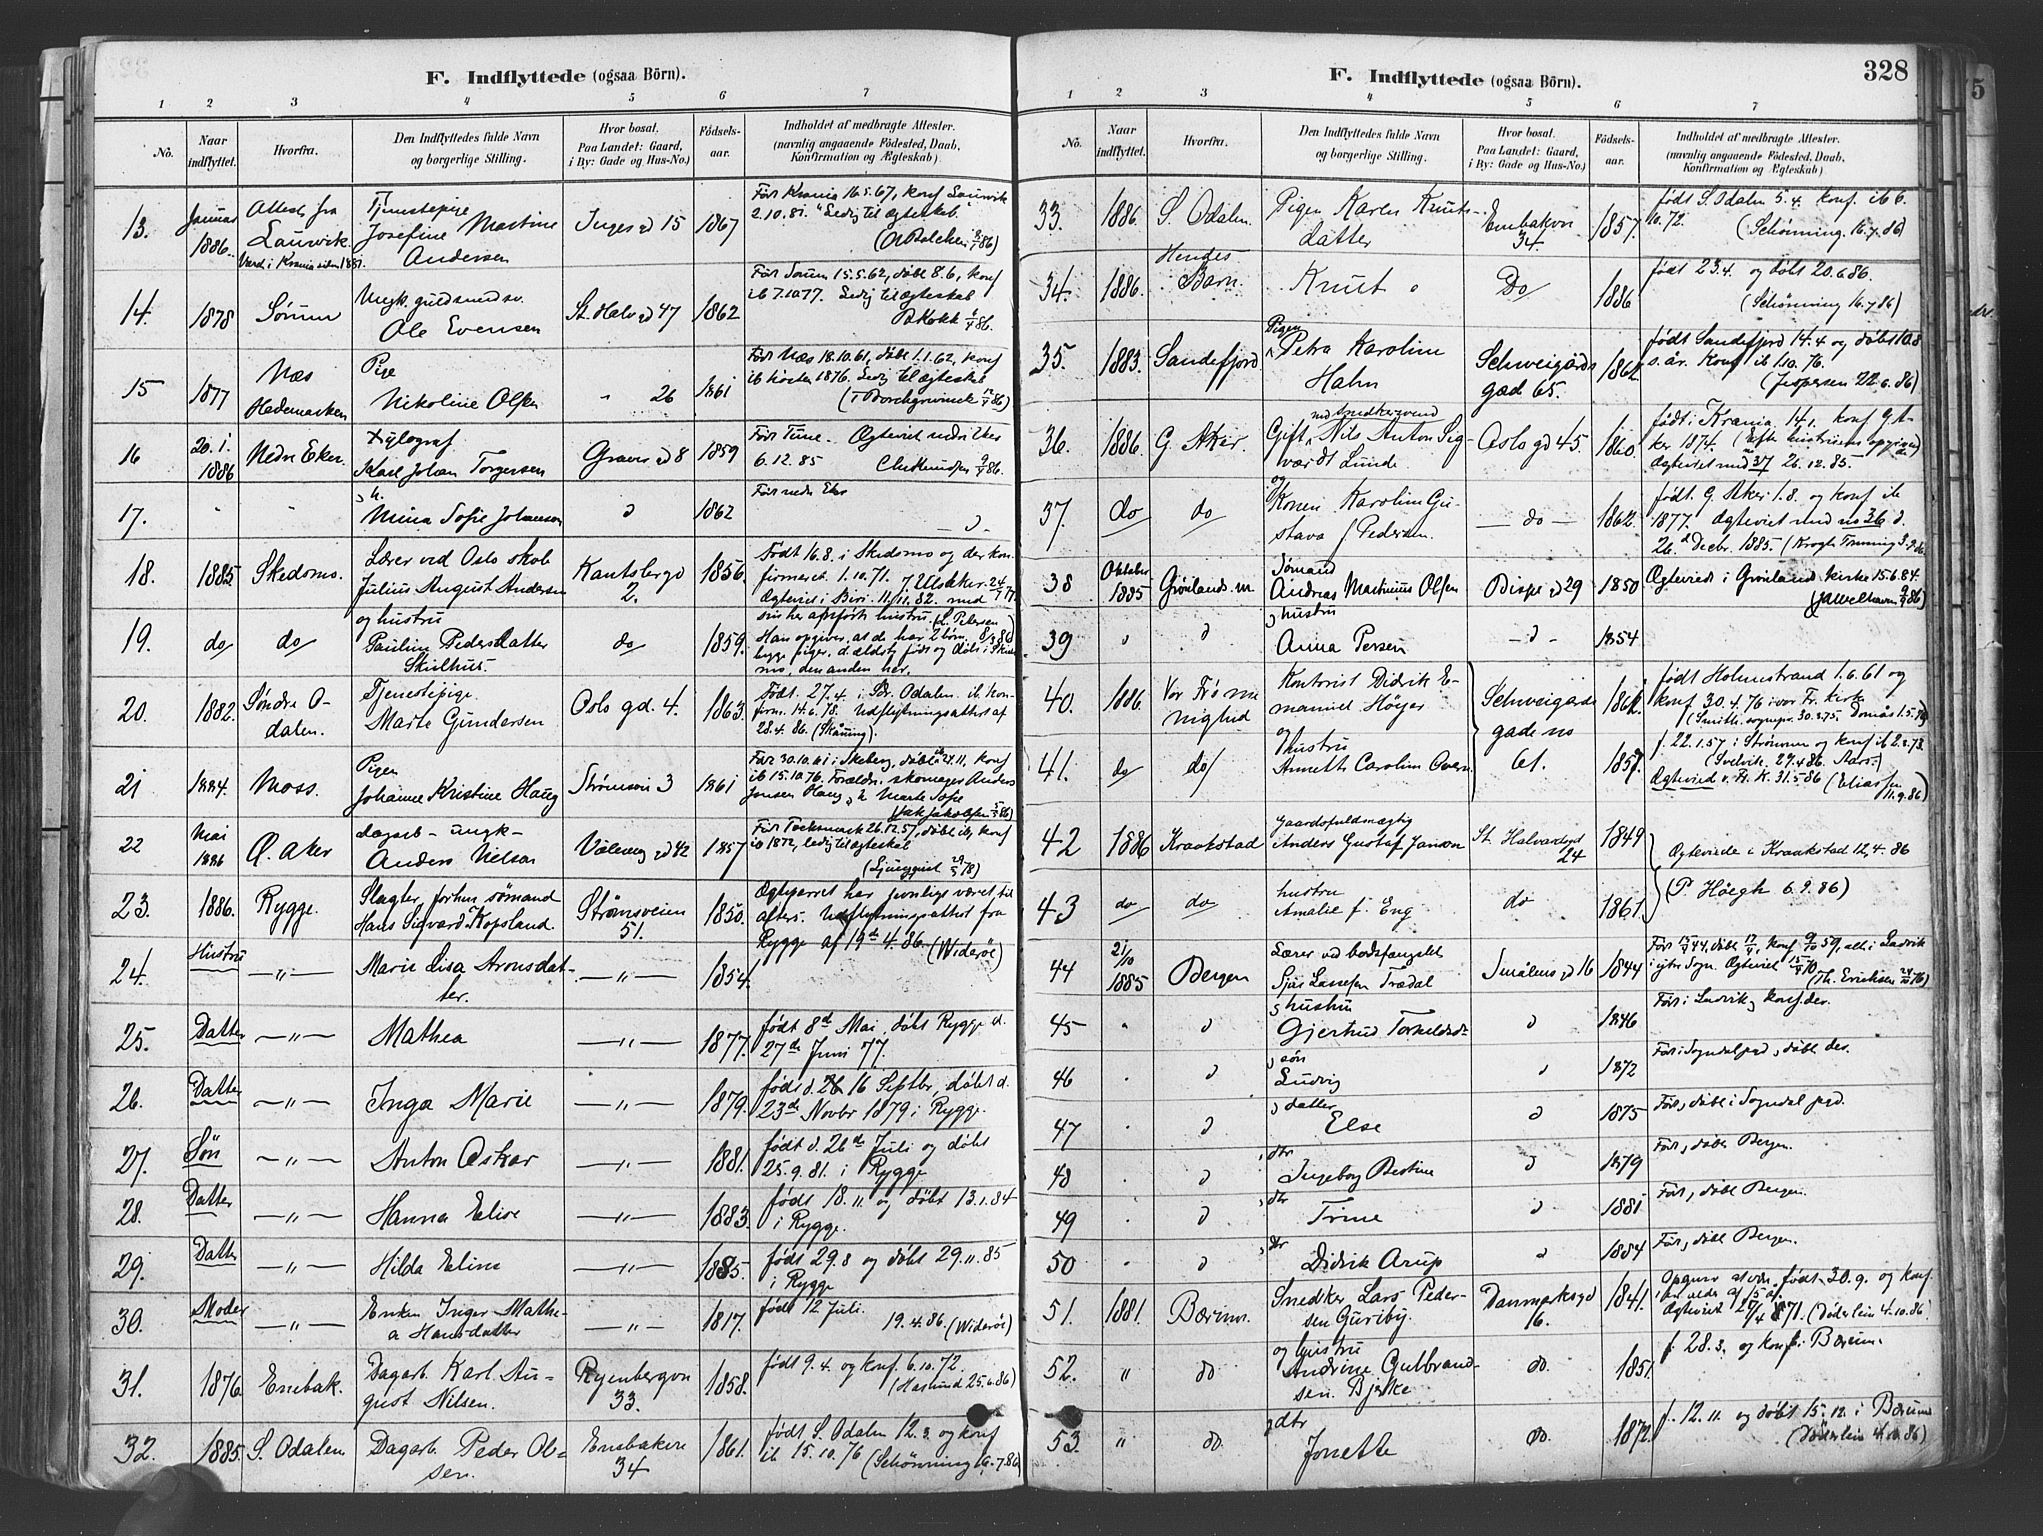 F. Indflyttede (ogsaa Börn).
1 2 3 4 5 6 7
No. Naar indflyttet. Hvorfra. Den Indflyttedes fulde Navn og borgerlige Stilling. Hvor bosat. Paa Landet: Gaard, i By: Gade og Hus-No.) Födsels-aar. Indholdet af medbragte Attester. (navnlig angaaende Födested, Daab, Konfirmation og Ægteskab).
13. Januar 1886. Attest fra Laurvik. Tjenestepige Josefine Martine Andersen Inges gd 15 1867 Før Krania 16.5.67, konf Laurvik 2.10.81. Ledig til ægteskab.
14. 1878 Sørum Ole Evensen St. Halv gd 47 1862 Før Sørum 15.5.62, døbt 8.6, konf ib 7.10.77. Ledig til ægteskab
15 1877 Næs Hedemarken Pige Nikoline Olsen " 26 1861 Før Næs 18.10.61, døbt 1.1.62, konf ib høsten 1876. Ledig til ægteskab
16 20.1. 1886 Nedre Eker. Xylograf Karl Johan Torgersen Grøns gd 8 1859 Før Tune. Ægteviet nedre Eker 6.12.85
17. " " h. Mina Sofie Johansen d 1862 Før nedre Eker — d —
18. 1885 Skedsmo. Lærer ved Oslo skole Julius August Andersen Kantsbergd 2. 1856. Født 16.8. i Skedsmo og der konfirmeret. 1.10.71. Ægteviet i Biri. 11/11.82. med sin her afførte hustru.
19. do do og hustru Pauline Pedersdatter Skilhus. do 1859. Han opgiver, at de har 2 børn. begge piger, d. ældste født og døbt i Skedsmo, den anden her.
20. 1882. Søndre Odalen. Tjenestepige. Marte Gundersen Oslo gd. 4. 1863. Født. 27.4. i Sdr. Odalen ib. konfirm. 14.6.78. Udflytningsattest af 28.4.86. (Skåning).
21 1884. Moss. Pigen Johanne Kristine Haug Strømsvn 3 1861 Før 30.10.61 i Skeberg, døbt 24.11. konf ib 15.10.76. Forældre: skomager Anders Jensen Haug, h Marte Sofie
22 Mai 1886 Ø. Aker dagarb - ungk - Anders Nelson Våleng gd 42 1857 Før Tocksmark 26.12.57, døbt ib, konf ib 1872, ledig til ægteskab
23. 1886. Rygge. Slagter, forhen sømand Hans Sigvard Kopsland. Strømsveien 51. 1850. Ægteparret har jevnligt været til alters. Udflytningsattest fra Rygge af 19de 4.86. (Widerøe)
24. Hustru —"— Marie Lisa Aronsdatter. —"— 1854.
25. Datter —"— Mathea —"— 1877. født 8de Mai, døbt Rygge d. 27de Juni 77.
26. Datter —"— Inga Marie —"— 1879. født d. 16 Septbr, døbt d. 23de Novbr 1879 i Rygge.
27. Søn —"— Anton Oskar —"— 1881. født d. 26de Juli og døbt 25.9.81. i Rygge
28. Datter —"— Hanna Elise —"— 1883. født 18.11 og døbt 13.1.84 i Rygge.
29. Datter —"— Hilda Eline —"— 1885. født 29.8 og døbt 29.11.85 i Rygge
30. Moder —"— Enken Inger Mathea Hansdatter —"— 1817. født 12 Juli. 19.4.86. (Widerøe)
31. 1876. Enebak. Dagarb. Karl August Nilsen. Ryenbergvn 33. 1858. født 9.4. og konf. 6.10.72 (Haslund 25.6.86)
32. 1885. S. Odalen Dagarb. Peder Olsen. Enebakvn 34 1861. født S. Odalen 12.2. og konf ib 15.10.76 (Schønning 16.7.86)
F. Indflyttede (ogsaa Börn). 328
1 2 3 4 5 6 7
No. Naar indflyttet. Hvorfra. Den Indflyttedes fulde Navn og borgerlige Stilling. Hvor bosat. Paa Landet: Gaard, i By: Gade og Hus-No.) Födsels-aar. Indholdet af medbragte Attester. (navnlig angaaende Födested, Daab, Konfirmation og Ægteskab)
33. 1886. S. Odalen. Pigen Karen Knutsdatter Enebakvn 34. 1857. født S. Odalen 5.4. konf. ib 6.10.72. (Schønning. 16.7.86)
34. 1886. Hendes Barn. Knut Do 1886 født 23.4. og døbt 20.6.86. (Schønning 16.7.86)
35. 1883. Sandefjord Pigen Petra Karoline Hahn Schweigårds gad 65. født Sandefjord 14.4 og døbt 10.8 s. år. Konf ib 1.10.76. (Jespersen 22.6.86)
36. 1886. G. Aker. Gift, Snedkersvend Nils Anton Sigvardt Lunde. Oslo gd 45. 1860. født i Krania. 14.1. konf G. Aker 1874. (Efter hustruens opgivende) Ægteviet med no 37 26.12.85.
37. do do og Konen Karoline Gustava f Pedersen. — do — 1862. født. G. Aker 1.8. og konf ib 1877. Ægteviet med no 36 d. 26d Decbr. 1885.
38 Oktober 1885 Grønlands m Sømand Andreas Martinius Olsen Bispe gd 29 1850 Ægteviede i Grønlands kirke 15.6.84.
39 " d hustru Anna Persen — d — 1854
40. 1886. Vor Frue menighed Kontorist Didrik Emanuel Höyer Schweigårds gade no 61. født Holmestrand 1.6.61 og konf 30.4.76 i vor Fr. kirke
41. do do og hustru Annette Caroline 1857. f. 22.1.57 i Strømm og konf ib Ægteviet v. Fr. K. 31.5.86 (Eliassen 11.9.86)
42 1886 Kraakstad Gaardsfuldmægtig Anders Gustaf Janson St. Halvardsgd 24 1849 Ægteviede i Kraakstad 12.4.86
43 do do hustru Amalie f. Eng do 1861. (P Höegh 6.9.86)
44 2/10 1885 Bergen Lærer ved bodsfængslet Lassesen Trædal Smålens gd 16 1844
45 " d hustru Gjertrud Torkeldsd d 1846 Før i Ladvik, konf. der.
46 . d søn Ludvig d 1872 Før i Sogndal pgd, døbt der.
47 . d datter Else d 1875 Før, døbt i Sogndal pgd.
48 . d dtr Ingeborg Bertine d 1879 Før, døbt Bergen.
49 . d dtr Trine d 1881 Før, døbt Bergen.
50 . d Didrik Arup d 1884 Før, døbt Bergen.
51. 1881. Bærum. Snedker Lars Pedersen Gurihy. Danmarksgd 16. 1841. Opgiver at være født 30.9. og konf. Ægteviet 27/4 1871. (Döderlein 4.10.86
52. " do og hustru Andrine Gulbrandsen Bjerke do. 1851. f 28.3. og konf i Bærum.
53. " do. dtr Jonette do. 1872. f. 12.11. og döbt 15.12. i Bærum (Döderlein 4.10.86)